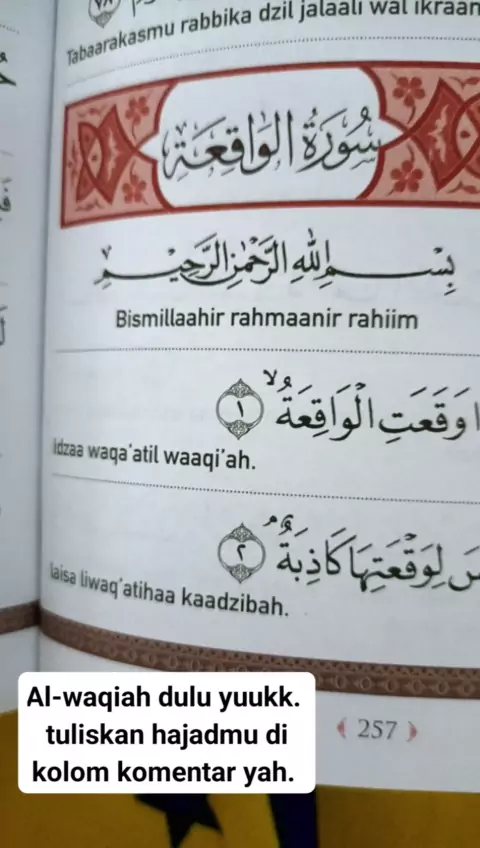 Tabaarakasmu rabbika dzil jalaali wal ikraan
سُورَةُ الْوَاقِعَةِ
بِسْــــمِ اللهِ الرَّحْمٰنِ الرَّحِيْـــمِ
Bismillaahir rahmaanir rahiim
وَقَعَتِ الْوَاقِعَةُ ۙ ١
Idzaa waqa'atil waaqi'ah.
لِوَقْعَتِهَا كَاذِبَةٌ ۘ ٢
laisa liwaq'atihaa kaadzibah.
257
Al-waqiah dulu yuukk.
tuliskan hajadmu di
kolom komentar yah.